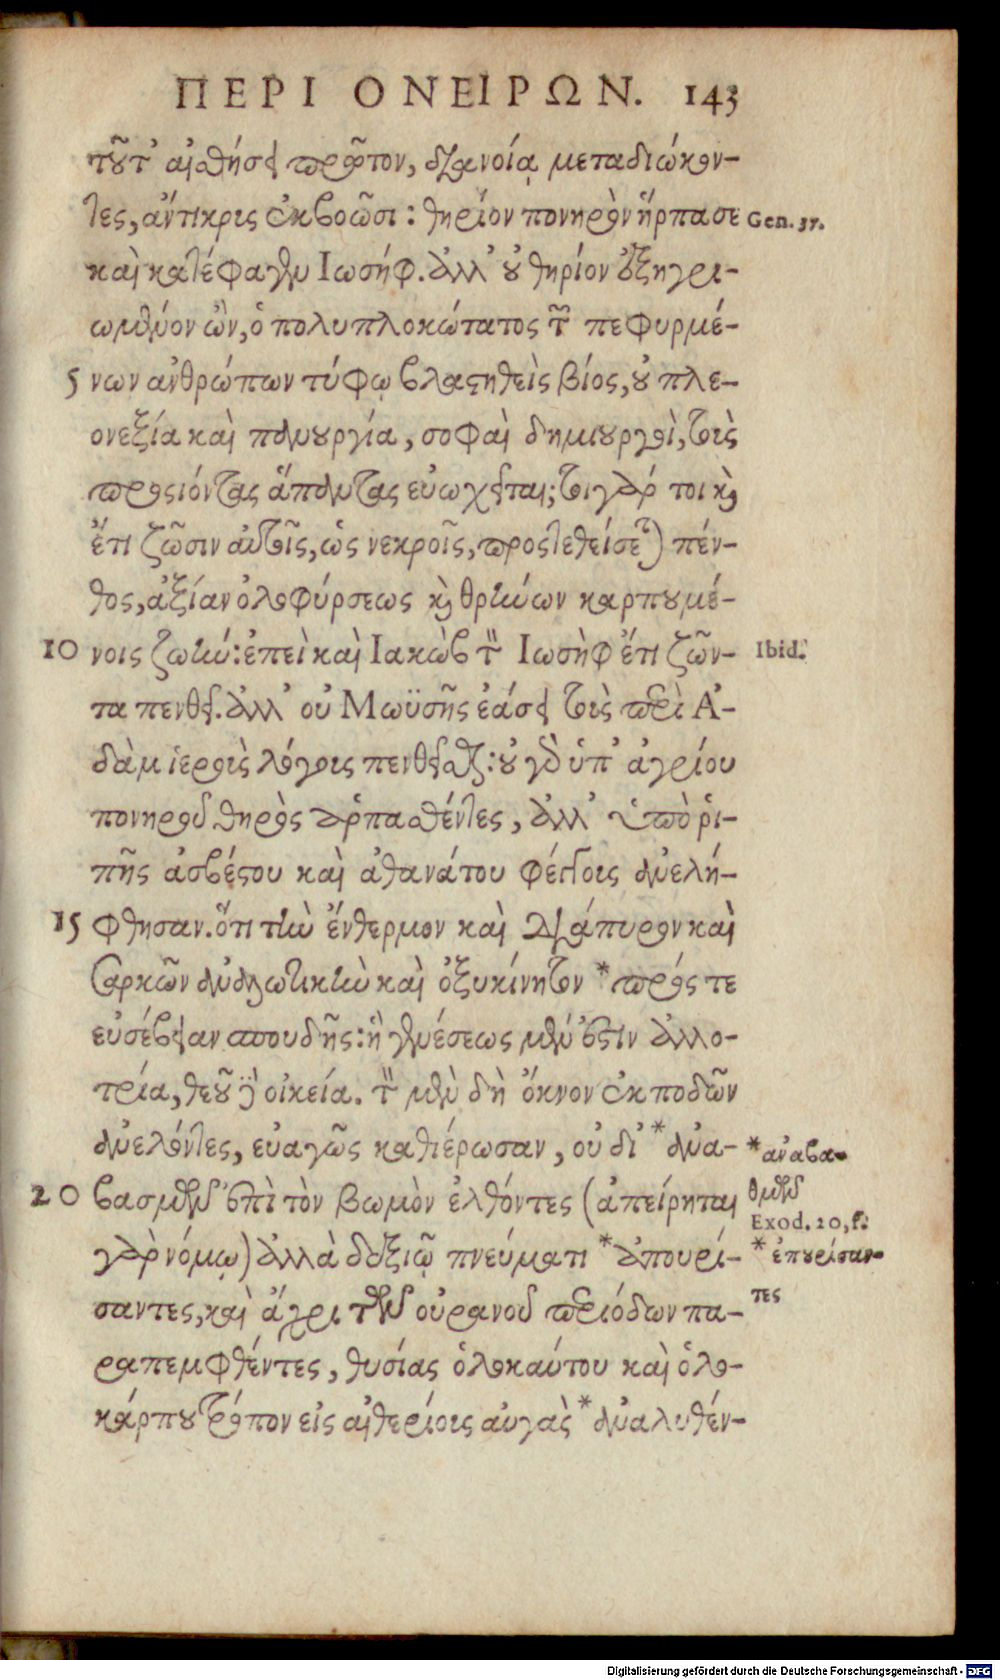 ΠΕΡΙ ΟΝΕΙΡΩΝ. 143
τοῦτ' αἰσθήσει πρῶτον, διανοίᾳ μεταδιώκον-
τες, ἄντικρις ἐκβοῶσι: θηρίον πονηρὸν ἥρπασε
Gen. 37.
καὶ κατέφαγεν Ἰωσήφ. ἀλλ' οὐ θηρίον ἐξηγρι-
ωμένον ὢν, ὁ πολυπλοκώτατος τῶν πεφυρμέ-
5 νων ἀνθρώπων τύφῳ βλαστηθεὶς βίος, οὗ πλε-
ονεξία καὶ πανουργία, σοφαὶ δημιουργοὶ, τοὺς
προσιόντας ἅπαντας εὐωχεῖται; τοιγάρ τοι καὶ
ἔτι ζῶσιν αὐτοῖς, ὡς νεκροῖς, προστεθείσεται πέν-
θος, ἀξίαν ὀλοφύρσεως καὶ θρήνων καρπουμέ-
10 νοις ζωήν: ἐπεὶ καὶ Ἰακὼβ τὸν Ἰωσὴφ ἔτι ζῶν-
Ibid.
τα πενθεῖ. ἀλλ' οὐ Μωϋσῆς ἐάσει τοὺς περὶ Ἀ-
δὰμ ἱεροὺς λόγους πενθεῖσθαι: οὐ γὰρ ὑπ' ἀγρίου
πονηροῦ θηρὸς ἁρπασθέντες, ἀλλ' ὑπὸ ῥι-
πῆς ἀσβέστου καὶ ἀθανάτου φέγγους ἀνελή-
15 φθησαν. ὅτι τὴν ἔνθερμον καὶ διάπυρον καὶ
σαρκῶν ἀναλωτικὴν καὶ ὀξυκίνητον * πρός τε
εὐσέβειαν σπουδῆς: ἣ γενέσεως μέν ἐστιν ἀλλο-
τρία, θεοῦ δὲ οἰκεία. τὸν μὲν δὴ ὄκνον ἐκποδῶν
ἀνελόντες, εὐαγῶς καθιέρωσαν, οὐ δι' * ἀνα-
* ἀναβα-
20 βασμῶν ἐπὶ τὸν βωμὸν ἐλθόντες (ἀπείρηται
θμῶν
Exod. 20, f.
γὰρ νόμῳ) ἀλλὰ δεξιῷ πνεύματι * ἀπουρί-
* ἐπουρίσαν-
σαντες, καὶ ἄχρι τῶν οὐρανοῦ περιόδων πα-
τες
ραπεμφθέντες, θυσίας ὁλοκαύτου καὶ ὁλο-
κάρπου τρόπον εἰς αἰθερίους αὐγὰς * ἀναλυθέν-
Digitalisierung gefördert durch die Deutsche Forschungsgemeinschaft - DFG